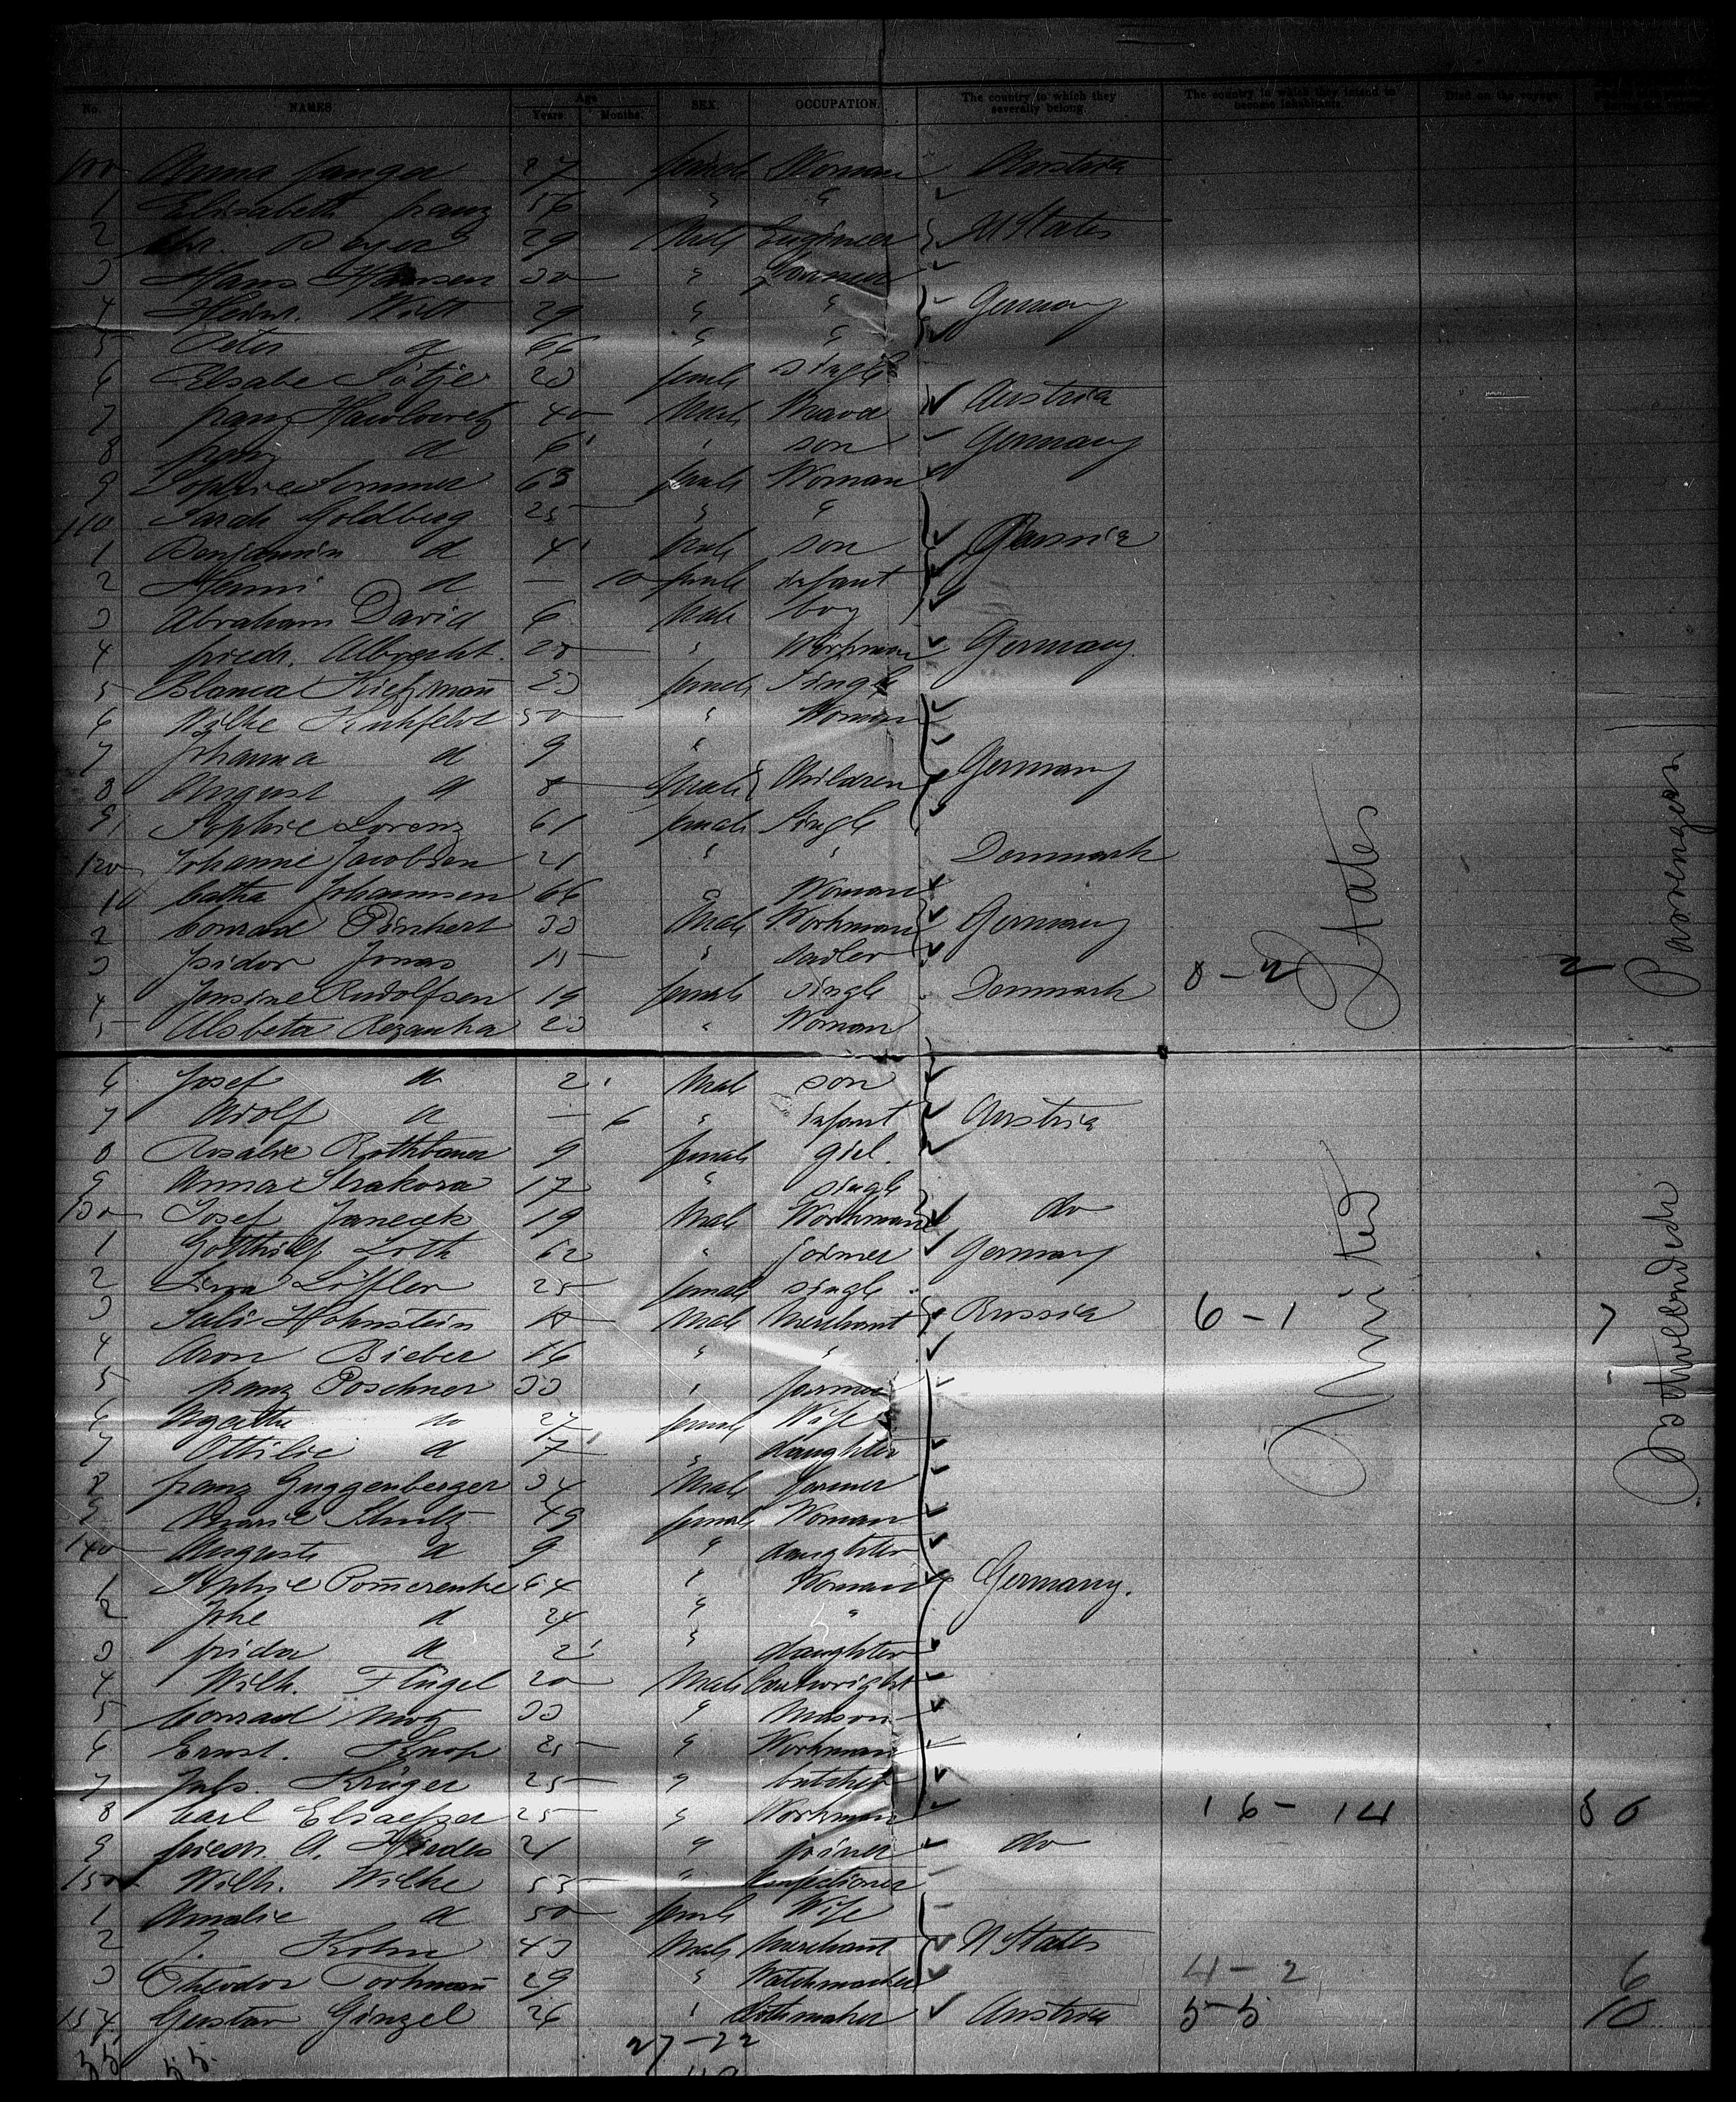 No. NAMES. Age Years. Months. SEX. OCCUPATION. The country to which they severally belong. The country to which they intend to become inhabitants. Died on the voyage.
100 Anna 27 female Woman Austria
1 Elisabeth Franz 56 " "
2 Chr. Beyer 29 Male Engineer U States
3 Hans Hansen 30 "
4 Heinr. Witt 29 " " Germany
5 Peter d 66 " "
6 Elsabe Götje 23 female single
7 Franz 40 Male Austria
8 Franz d 6 " son Germany
9 Sophie Sommer 63 female Woman
110 Sarah Goldberg 25 " "
1 Benjamin d 4 Male son Russia
2 Henni d — 10 female infant
3 Abraham David 6 Male boy
4 Friedr. Albrecht 28 " Workman Germany
5 Blanca 23 female Single
6 Wilke Kuhfeldt 50 " Woman
7 Johanna d 9 "
8 August d 8 Male Children Germany
9 Sophie Lorenz 61 female Single
120 Johanne Jacobsen 21 " " Denmark
1 Catha Johannsen 66 " Woman
2 Conrad Pinkert 33 Male Workman Germany
3 Isidor Jonas 15 "
4 Jensine Rudolfsen 19 female single Denmark
5 Alsbeta Rezanka 23 " Woman
6 Josef d 2 Male son
7 Adolf d — 6 " infant Austria
8 Rosalie Rothbauer 9 female girl.
9 Anna Strakova 17 " single
130 Josef Janecek 19 Male Workman do
1 Gotthilf Loth 62 " Germany
2 Löffler 25 female single
3 Sali Hohnstein 18 Male Merchant Russia 6 - 1 7
4 Aron Bieber 16 " "
5 Franz Poschner 33 " farmer
6 Agathe do 27 female Wife
7 Ottilie d 7 " daughter
8 Franz Guggenberger 34 Male farmer
9 Marie Schultz 49 female Woman
140 Auguste d 9 " daughter
1 Sophie Pom̄erenke 64 " Woman Germany.
2 d 24 " "
3 Frida d 2 " daughter
4 Wilh. Flügel 20 Male Cartwright
5 Conrad 33 " Mason
6 Ernst. Knop 25 " Workman
7 Juls. Krüger 25 " butcher
8 Carl 25 " Workman 16 - 14
9 Friedr. A. 21 " joiner do
150 Wilh. Wilke 53 " Confectioner
1 Amalie d 50 female Wife
2 J. Kohn 43 Male Merchant U States
3 Theodor 29 " Watchmacker 4 - 2 6
154 Gustav Ginzel 26 " Austria 5-5 10
55 55. 27-22
United States
Betweendeck Passengers